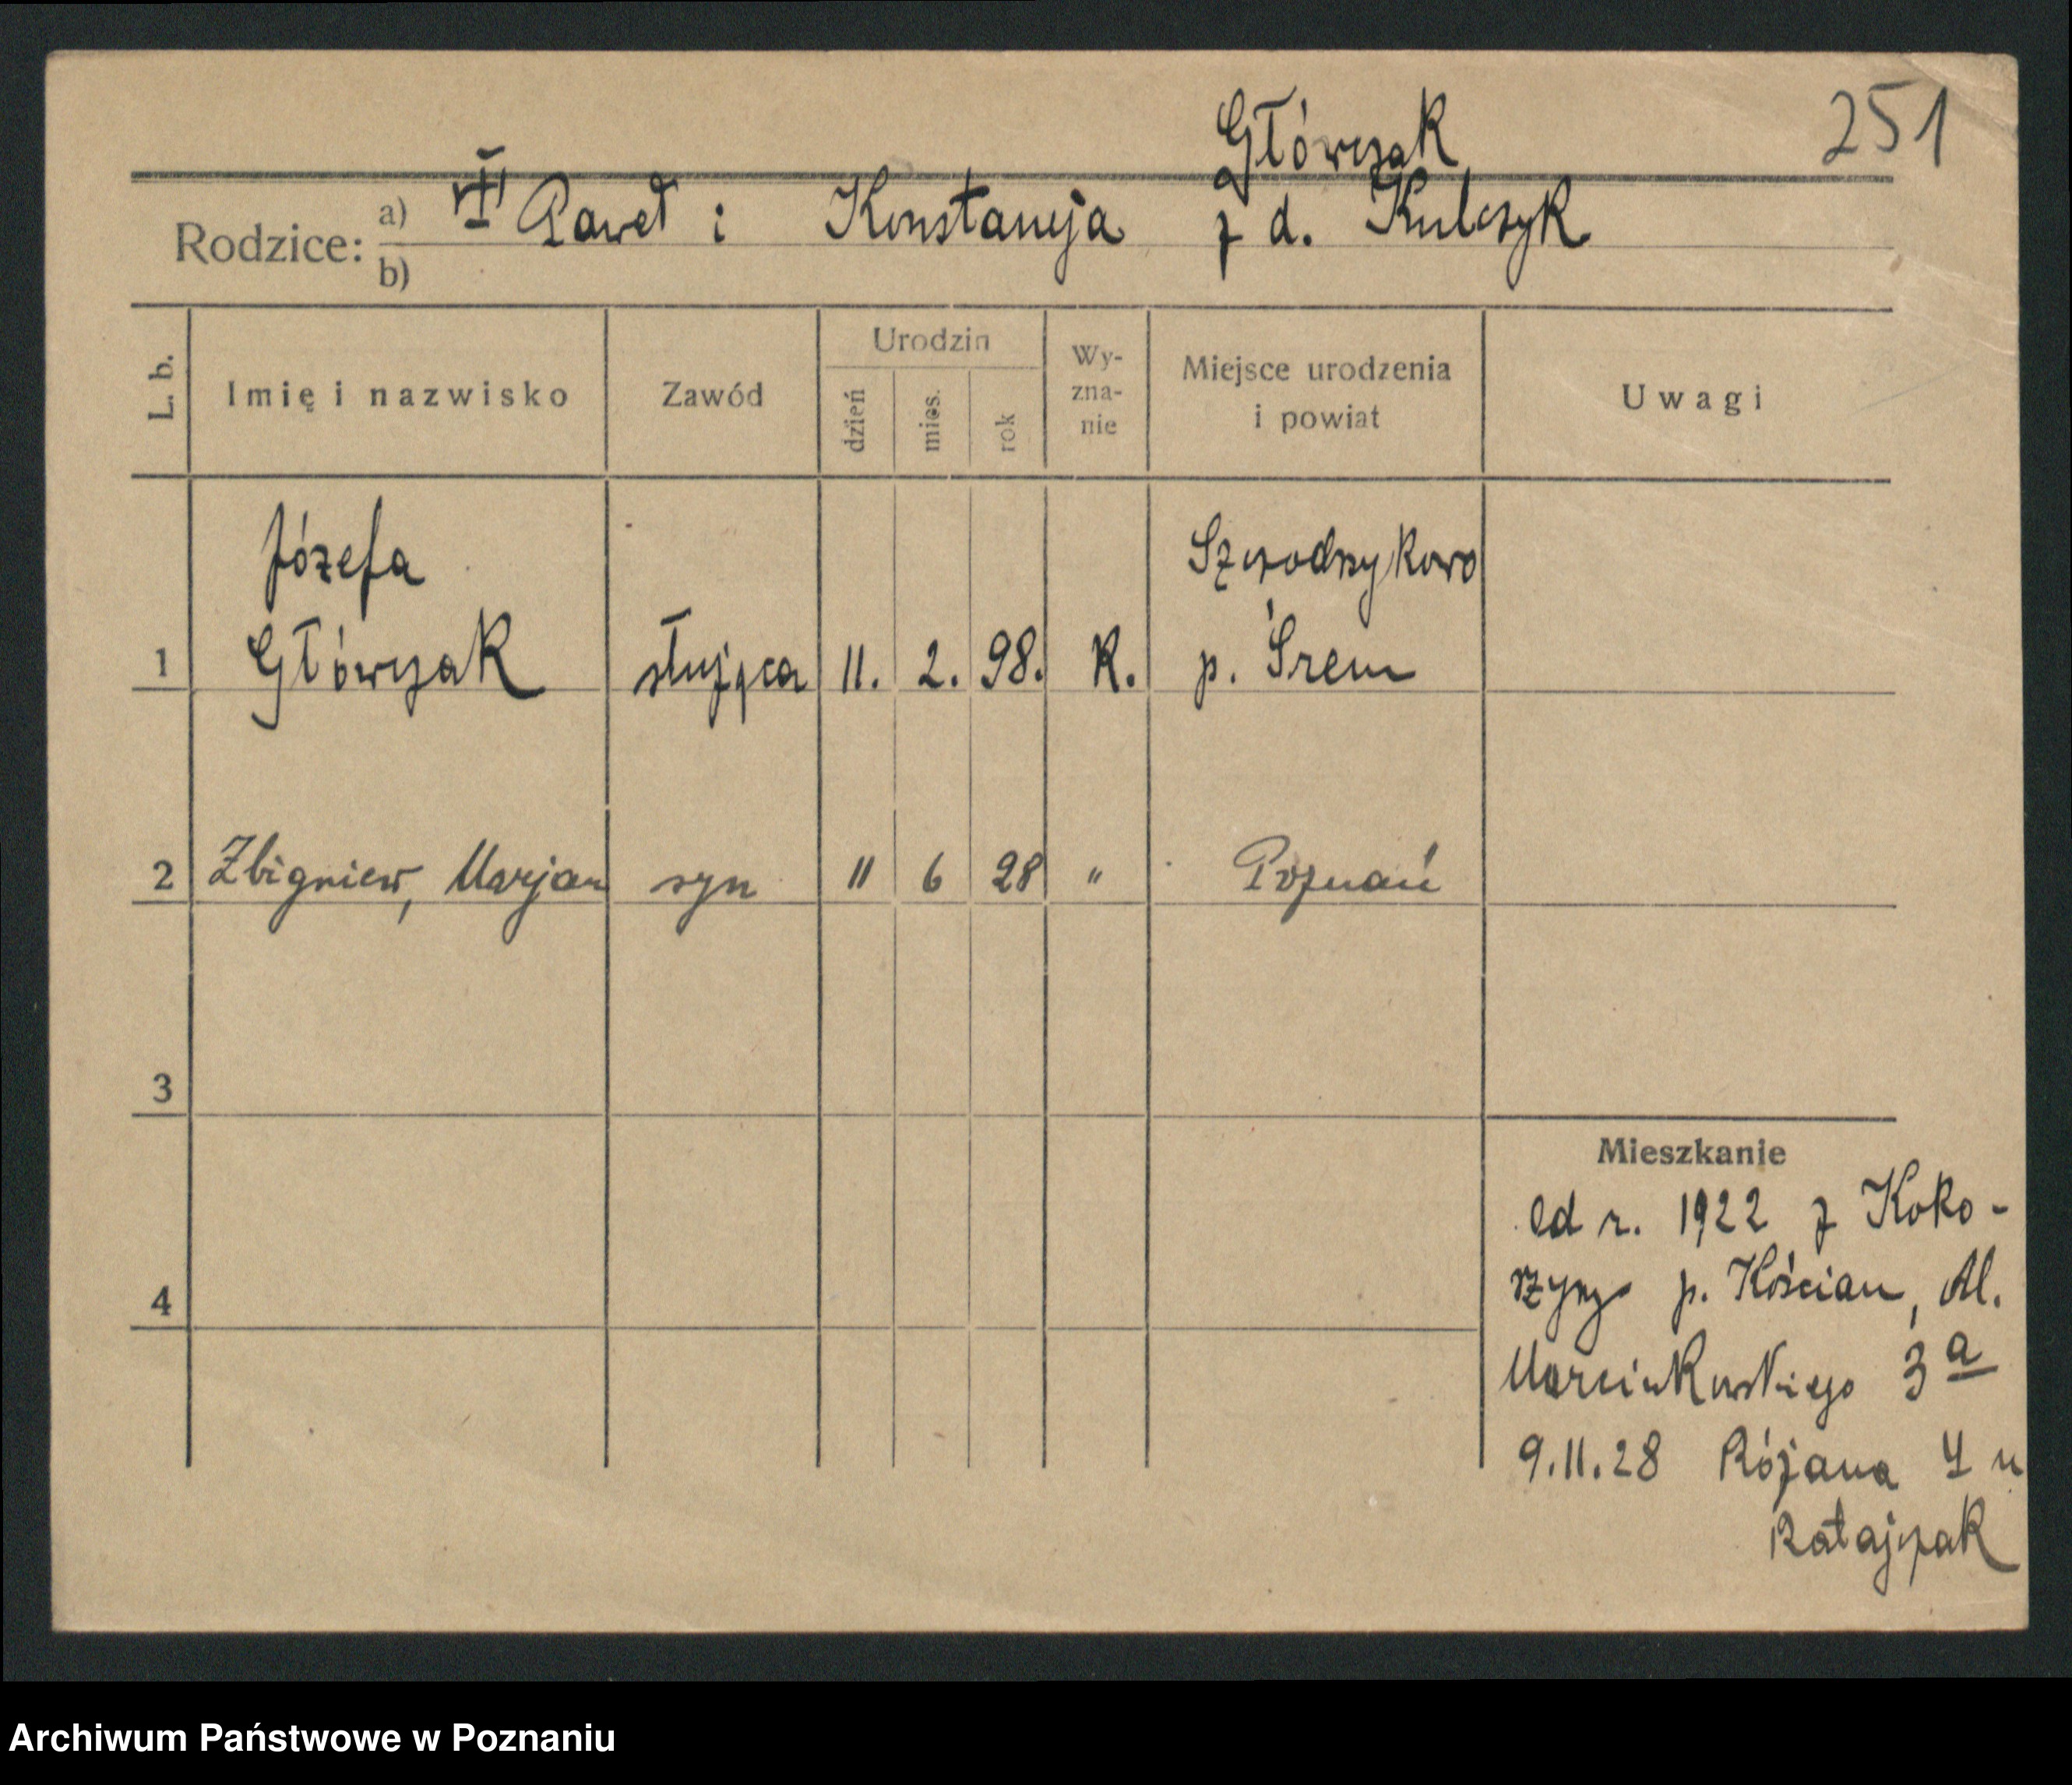 251
Główczak
Rodzice: a) Paweł i Konstancja z d. Kulczyk
b)
L. b. Imię i nazwisko Zawód Urodzin dzień mies. rok Wy-zna-nie Miejsce urodzenia i powiat Uwagi
Józefa
1 Główczak służąca 11. 2. 98. K. p. Śrem
2 Zbigniew, Marjan syn 11 6 28 " Poznań
3
4
Mieszkanie
od r. 1922 z Koko-
rzyna p. Kościan, Al.
Marcinkowskiego 3a
9.11.28 Różana 4 u
Ratajczak
Archiwum Państwowe w Poznaniu